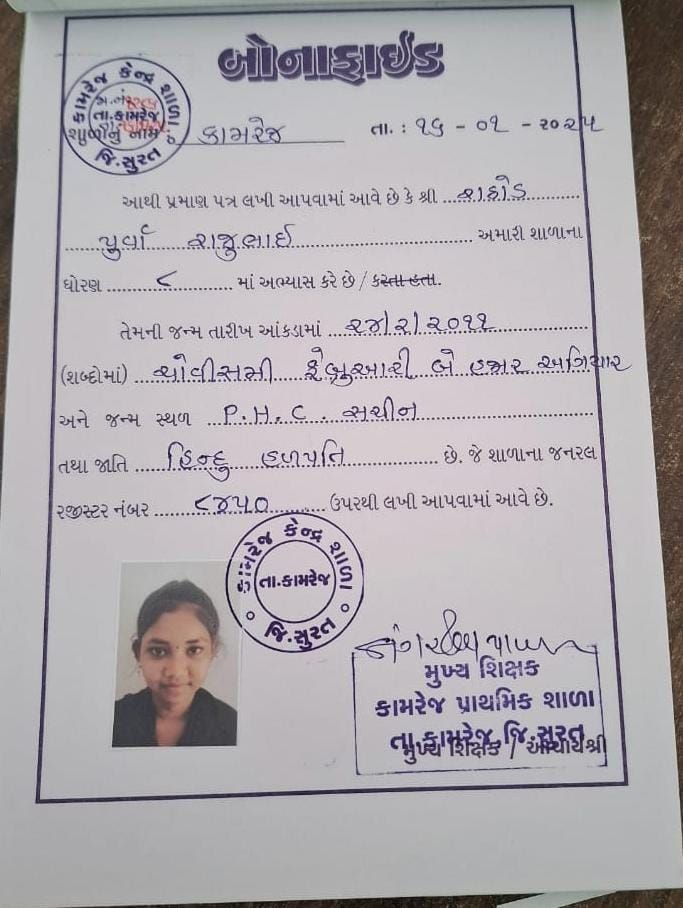 બોનાફાઈડ
કામરેજ કેન્દ્ર શાળા
તા.કામરેજ
જિ.સુરત
શાળાનું નામ કામરેજ તા. : ૧૬ - ૦૧ - ૨૦૨૫
આથી પ્રમાણ પત્ર લખી આપવામાં આવે છે કે શ્રી રાઠોડ
પુર્વા રાજુભાઈ અમારી શાળાના
ધોરણ ૮ માં અભ્યાસ કરે છે / કરતા હતા.
તેમની જન્મ તારીખ આંકડામાં ૨૪/૨/૨૦૧૧
(શબ્દોમાં) ચોવીસમી ફેબ્રુઆરી બે હજાર અગિયાર
અને જન્મ સ્થળ P.H.C. સચીન
તથા જાતિ હિન્દુ હળપતિ છે. જે શાળાના જનરલ
રજીસ્ટર નંબર ૮૪૫૦ ઉપરથી લખી આપવામાં આવે છે.
કામરેજ કેન્દ્ર શાળા
તા.કામરેજ
જિ.સુરત
મુખ્ય શિક્ષક
કામરેજ પ્રાથમિક શાળા
તા.કામરેજ, જિ.સુરત
મુખ્ય શિક્ષક / આચાર્યશ્રી